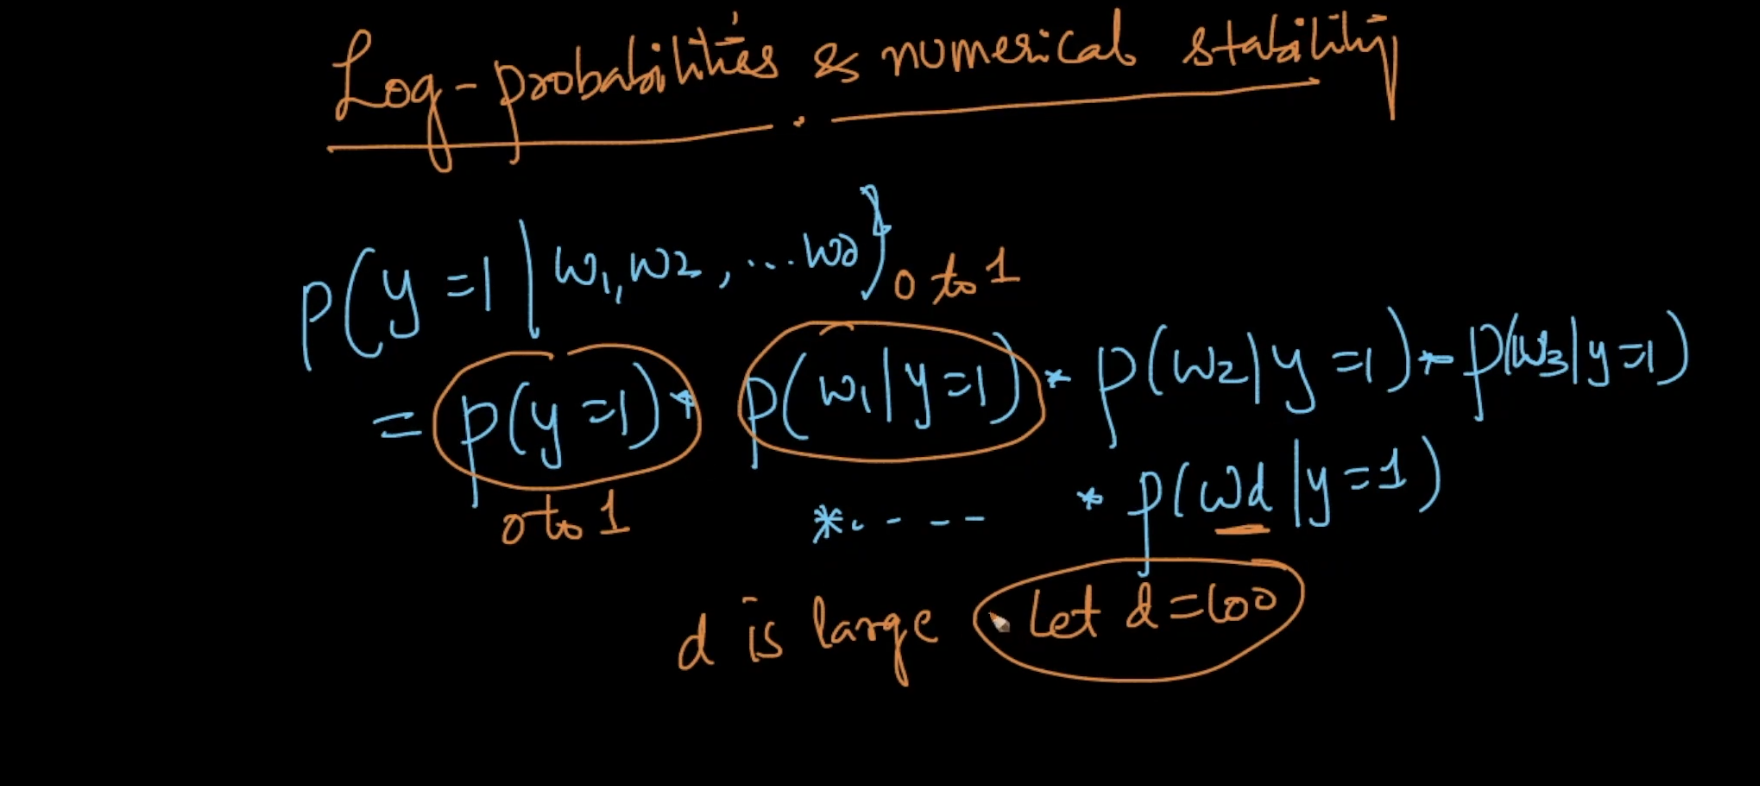 Log-probabilities & numerical stability
P(y=1|w1,w2,...wd) 0 to 1
= p(y=1)* p(w1|y=1) * p(w2|y=1) * p(w3|y=1)
0 to 1 *.---- * p(wd|y=1)
d is large Let d=100